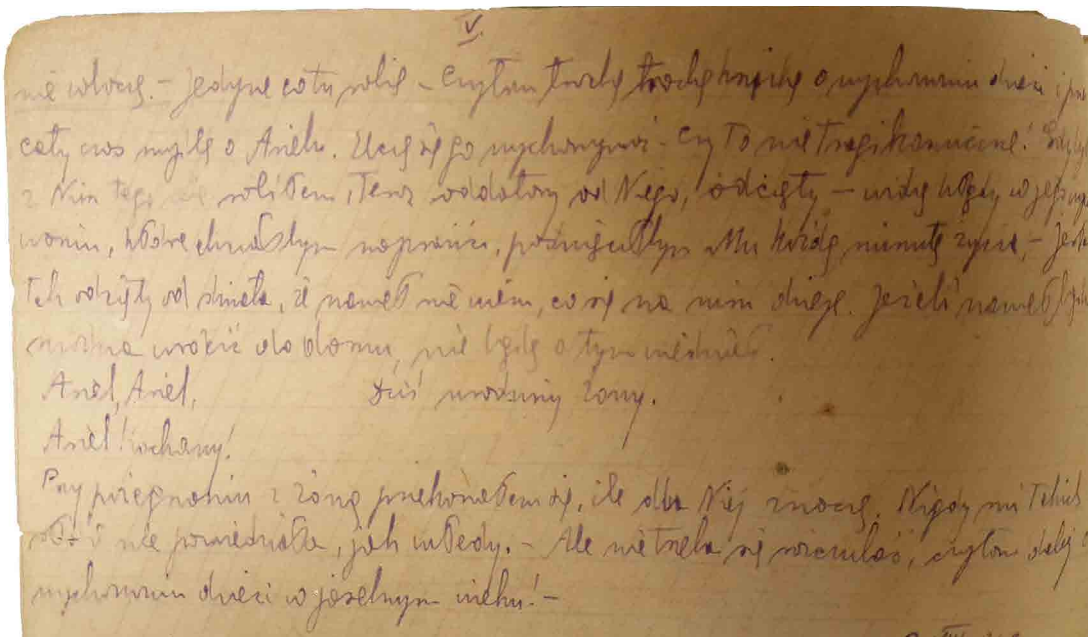 V.
nie wolno. – Jedyne co tu robię – czytam trochę książkę o wychowaniu dzieci i
cały czas myślę o Anielu. Uczę się go wychowywać – czy to nie tragikomiczne!
z Nim tego nie robiłem, teraz oddalony od Niego, odcięty – widzę błędy w jego
waniu, które chciałbym naprawić, poświęciłbym Mu każdą minutę życia, –
tak odcięty od świata, że nawet nie wiem, co się na nim dzieje. Jeżeli nawet
można wrócić do domu, nie będę o tym wiedział.
Aniel, Aniel, Dziś urodziny żony.
Aniel! kochany!
Przy pożegnaniu z żoną przekonałem się, ile dla Niej znaczę. Nigdy mi takich
słów nie powiedziała, jak wtedy. – Ale nie trzeba się rozczulać, czytam dalej o
wychowaniu dzieci w wieku! –